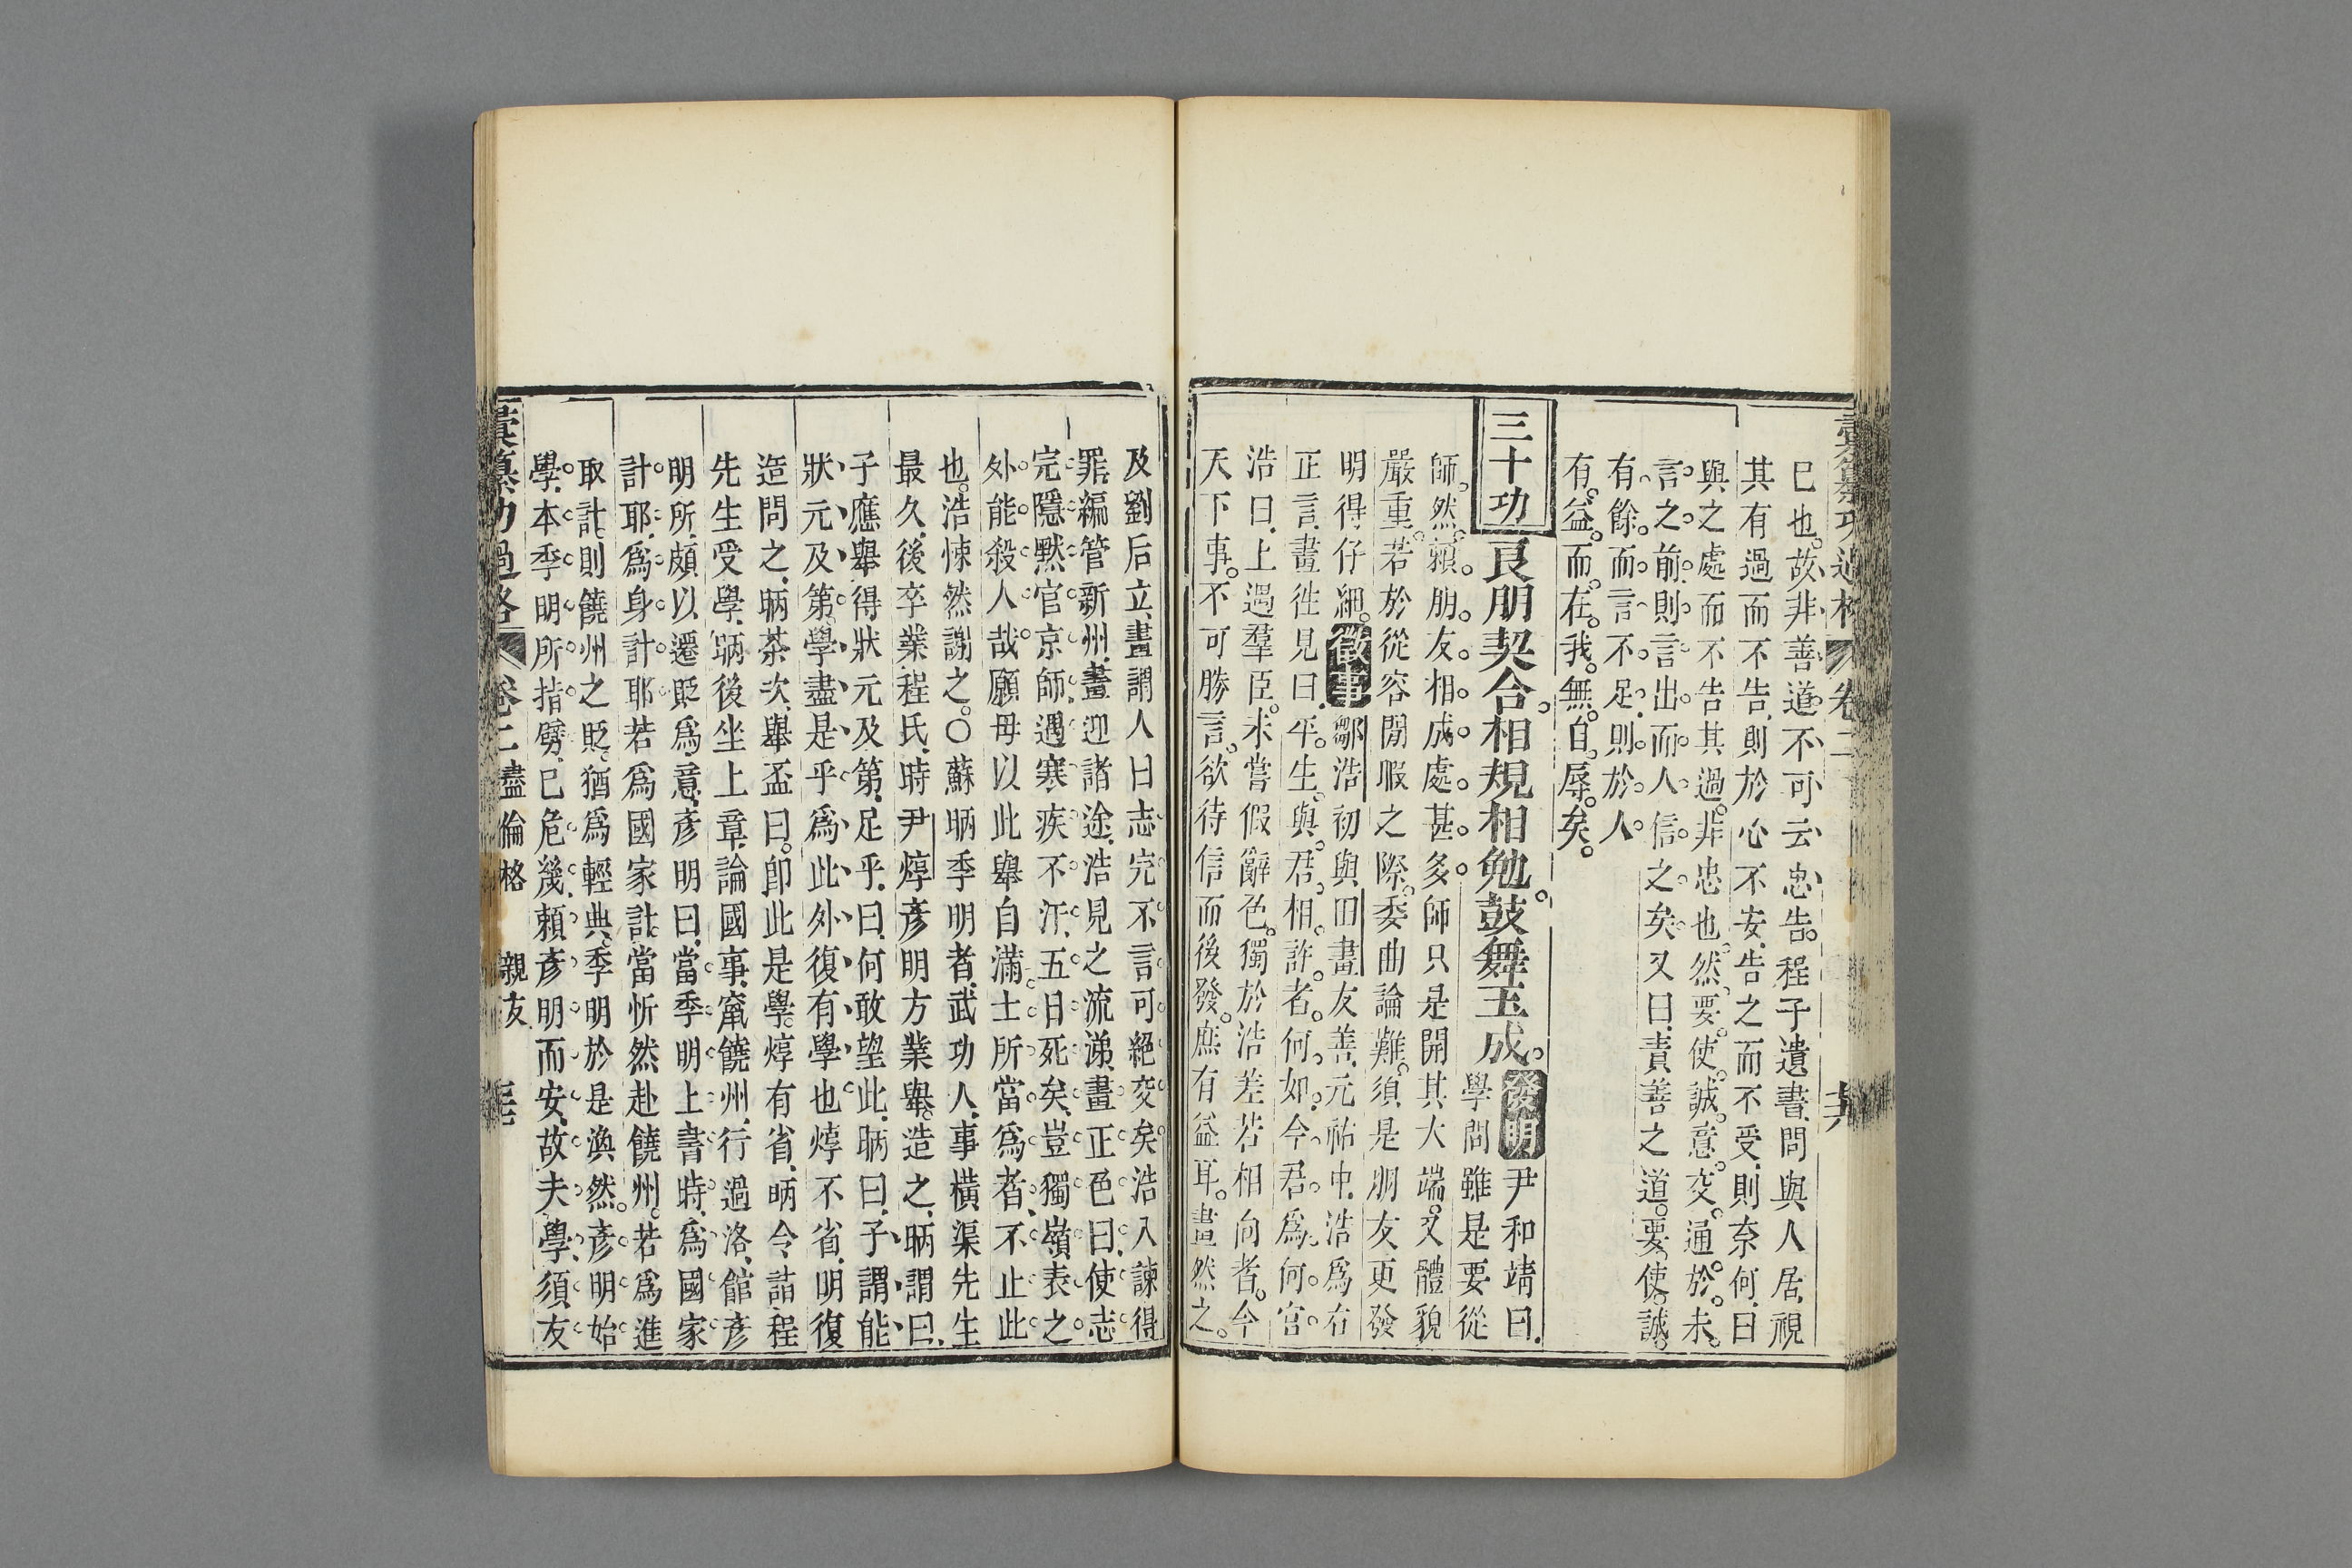 彙纂功過格 卷二
已也故非善道不可云忠告程子遺書問與人居視
其有過而不告則於心不安告之而不受則奈何曰
與之處而不告其過非忠也然要使誠意交通於未
言之前則言出而人信之矣又曰責善之道要使誠
有餘而言不足則於人
有益而在我無自辱矣
三十功 良朋契合相規相勉鼓舞玉成 發明 尹和靖曰
學問雖是要從
師然賴朋友相成處甚多師只是開其大端又體貌
嚴重若於從容閒暇之際委曲論難須是朋友更發
明得仔細 徵事 鄒浩初與田畫友善元祐中浩為右
正言畫徃見曰平生與君相許者何如今君為何官
浩曰上遇羣臣未嘗假辭色獨於浩差若相向者今
天下事不可勝言欲待信而後發庶有益耳畫然之
及劉后立畫謂人曰志完不言可絕交矣浩入諫得
罪編管新州畫迎諸途浩見之流涕畫正色曰使志
完隱默官京師遇寒疾不汗五日死矣豈獨嶺表之
外能殺人哉願毋以此舉自滿士所當為者不止此
也浩悚然謝之〇蘇昞季明者武功人事橫渠先生
最久後卒業程氏時尹焞彥明方業舉造之昞謂曰
子應舉得狀元及第足乎曰何敢望此昞曰子謂能
狀元及第學盡是乎為此外復有學也焞不省明復
造問之昞茶次舉盃曰卽此是學焞有省昞令詣程
先生受學昞後坐上章論國事竄饒州行過洛館彥
明所頗以遷貶為意彥明曰當季明上書時為國家
計耶為身計耶若為國家計當忻然赴饒州若為進
取計則饒州之貶猶為輕典季明於是渙然彥明始
學本季明所指劈已危幾賴彥明而安故夫學須友
彙纂功過格 卷二 盡倫格 親友